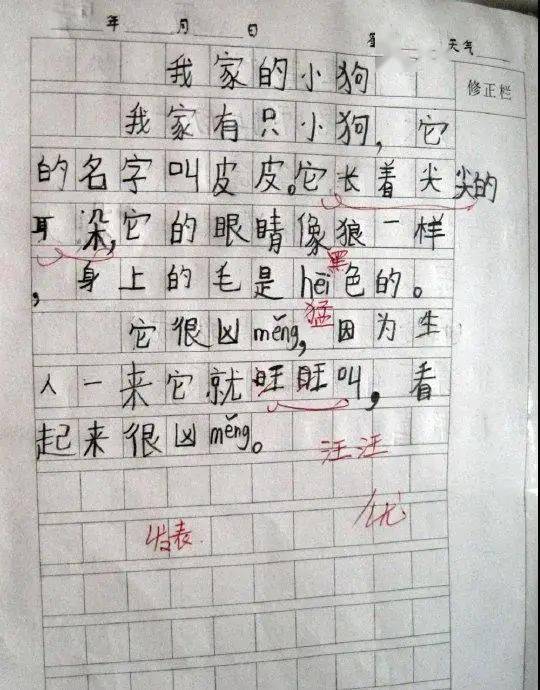 年 月 日 天气
修正栏
我家的小狗
我家有只小狗，它
的名字叫皮皮。它长着尖尖的
耳朵，它的眼睛像狼一样
，身上的毛是hēi色的。
黑
它很凶měng，因为生
猛
人一来它就旺旺叫，看
起来很凶měng。
汪汪
发表.
优